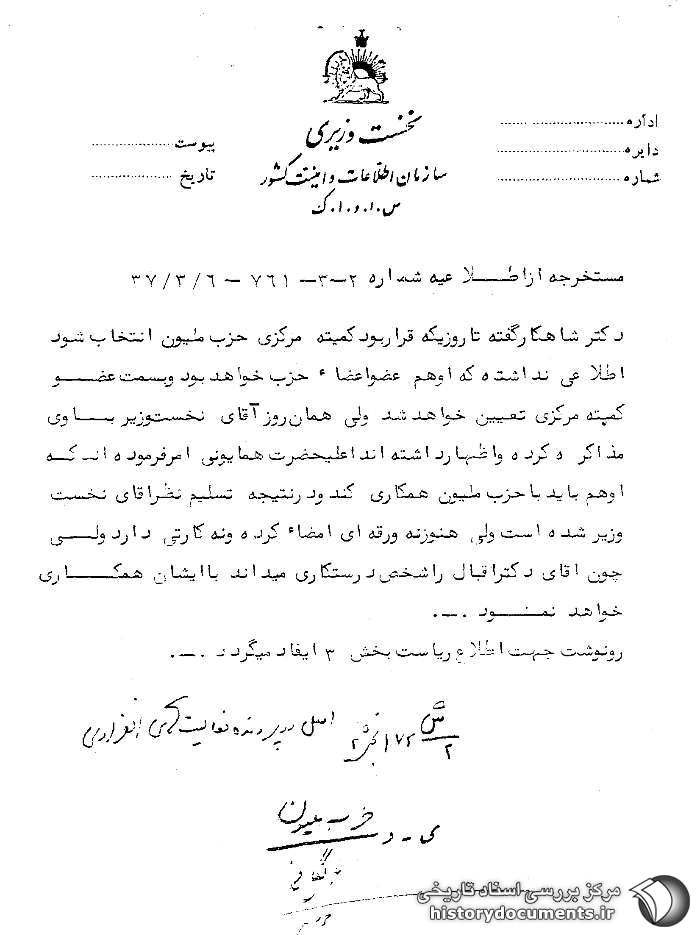 نخست وزیری
سازمان اطلاعات و امنیت کشور
س.ا.و.ا.ک
اداره
دایره
شماره
پیوست
تاریخ
مستخرجه از اطلاعیه شماره ۲-۳- ۷۶۱ - ۳۷/۳/۶
دکتر شاهکار گفته تا روزیکه قرار بود کمیته مرکزی حزب ملیون انتخاب شود
اطلاعی نداشته که او هم عضو اعضاء حزب خواهد بود و بسمت عضو
کمیته مرکزی تعیین خواهد شد ولی همان روز آقای نخست‌وزیر با وی
مذاکره کرده و اظهار داشته اند اعلیحضرت همایونی امر فرموده اند که
او هم باید با حزب ملیون همکاری کند و در نتیجه تسلیم نظر اقای نخست
وزیر شده است ولی هنوز نه ورقه ای امضاء کرده و نه کارتی دارد ولی
چون اقای دکتر اقبال را شخص درستکاری میداند با ایشان همکاری
خواهد نمود .-.
رونوشت جهت اطلاع ریاست بخش ۳ ایفاد میگردد .-.
اصل در پرونده فعالیت های انفرادی
حزب ملیون
ی - د
مرکز بررسی اسناد تاریخی
historydocuments.ir